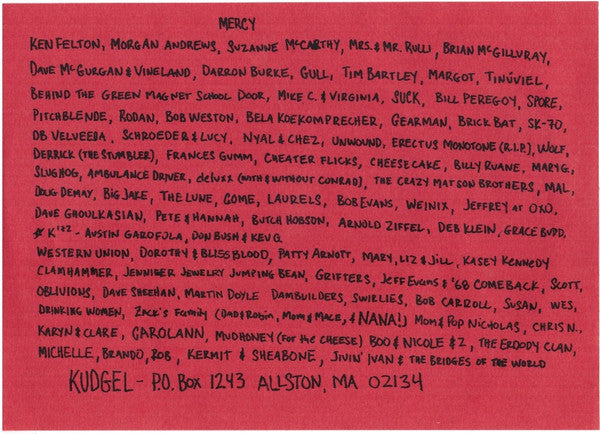 MERCY
KEN FELTON, MORGAN ANDREWS, SUZANNE McCARTHY, MRS. & MR. RULLI, BRIAN McGILLVRAY,
DAVE McGURGAN & VINELAND, DARRON BURKE, GULL, TIM BARTLEY, MARGOT, TINÚVIEL,
BEHIND THE GREEN MAGNET SCHOOL DOOR, MIKE C. & VIRGINIA, SUCK, BILL PEREGOY, SPORE,
PITCHBLENDE, RODAN, BOB WESTON, BELA KOEKOMPRECHER, GEARMAN, BRICK BAT, SK-70,
DB VELVEEDA, SCHROEDER & LUCY, NYAL & CHEZ, UNWOUND, ERECTUS MONOTONE (R.I.P.), WOLF,
DERRICK (THE STUMBLER), FRANCES GUMM, CHEATER FLICKS, CHEESECAKE, BILLY RUANE, MARY G.,
SLUGHOG, AMBULANCE DRIVER, deluxx (WITH & WITHOUT CONRAD), THE CRAZY MATSON BROTHERS, MAL,
DOUG DEMAY, BIG JAKE, THE LUNE, COME, LAURELS, BOB EVANS, WEINIX, JEFFREY AT OXO,
DAVE GHOULKASIAN, PETE & HANNAH, BUTCH HOBSON, ARNOLD ZIFFEL, DEB KLEIN, GRACE BUDD,
K122 - AUSTIN GAROFOLA, DON BUSH & KEV G.
WESTERN UNION, DOROTHY & BLISS BLOOD, PATTY ARNOTT, MARY, LIZ & JILL, KASEY KENNEDY
CLAMHAMMER, JENNIFER JEWELRY JUMPING BEAN, GRIFTERS, JEFF EVANS & '68 COMEBACK, SCOTT,
OBLIVIONS, DAVE SHEEHAN, MARTIN DOYLE DAMBUILDERS, SWIRLIES, BOB CARROLL, SUSAN, WES,
DRINKING WOMEN, ZACK'S FAMILY (DAD & ROBIN, MOM & MACE, & NANA!) MOM & POP NICHOLAS, CHRIS N.,
KARYN & CLARE, CAROLANN, MUDHONEY (FOR THE CHEESE) BOO & NICOLE & Z, THE ERDODY CLAN,
MICHELLE, BRANDO, ROB, KERMIT & SHEABONE, JIVIN' IVAN & THE BRIDGES OF THE WORLD
KUDGEL - P.O. BOX 1243 ALLSTON, MA 02134